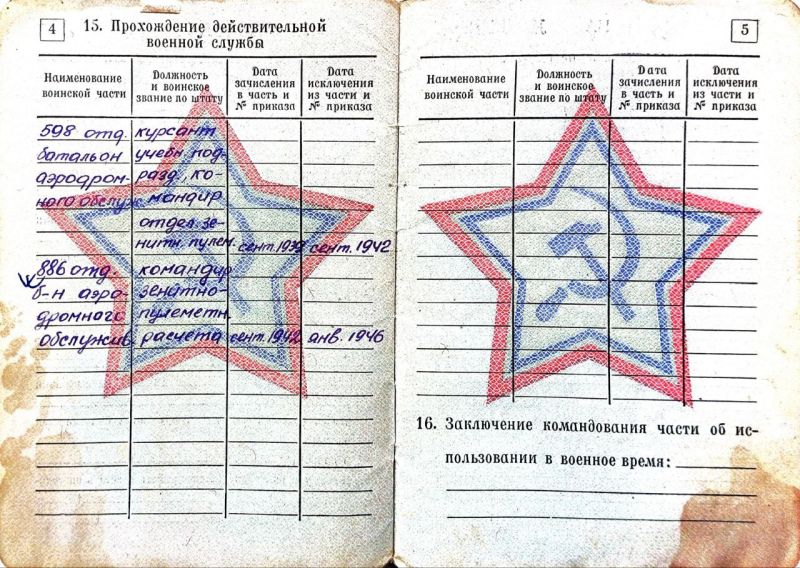 4
15. Прохождение действительной
военной службы
Наименование
воинской части
Должность
и воинское
звание по штату
Дата
зачисления
в часть и
№ приказа
Дата
исключения
из части и
№ приказа
598 отд.
батальон
аэродром-
ного обслуж.
курсант
учебн. под-
разд., ко-
мандир
отдел. зе-
нитн. пулем.
сент. 1939
сент. 1942
886 отд.
б-н аэро-
дромного
обслужив.
командир
зенитно-
пулеметн.
расчета
сент. 1942
янв. 1946
5
Наименование
воинской части
Должность
и воинское
звание по штату
Дата
зачисления
в часть и
№ приказа
Дата
исключения
из части и
№ приказа
16. Заключение командования части об ис-
пользовании в военное время: